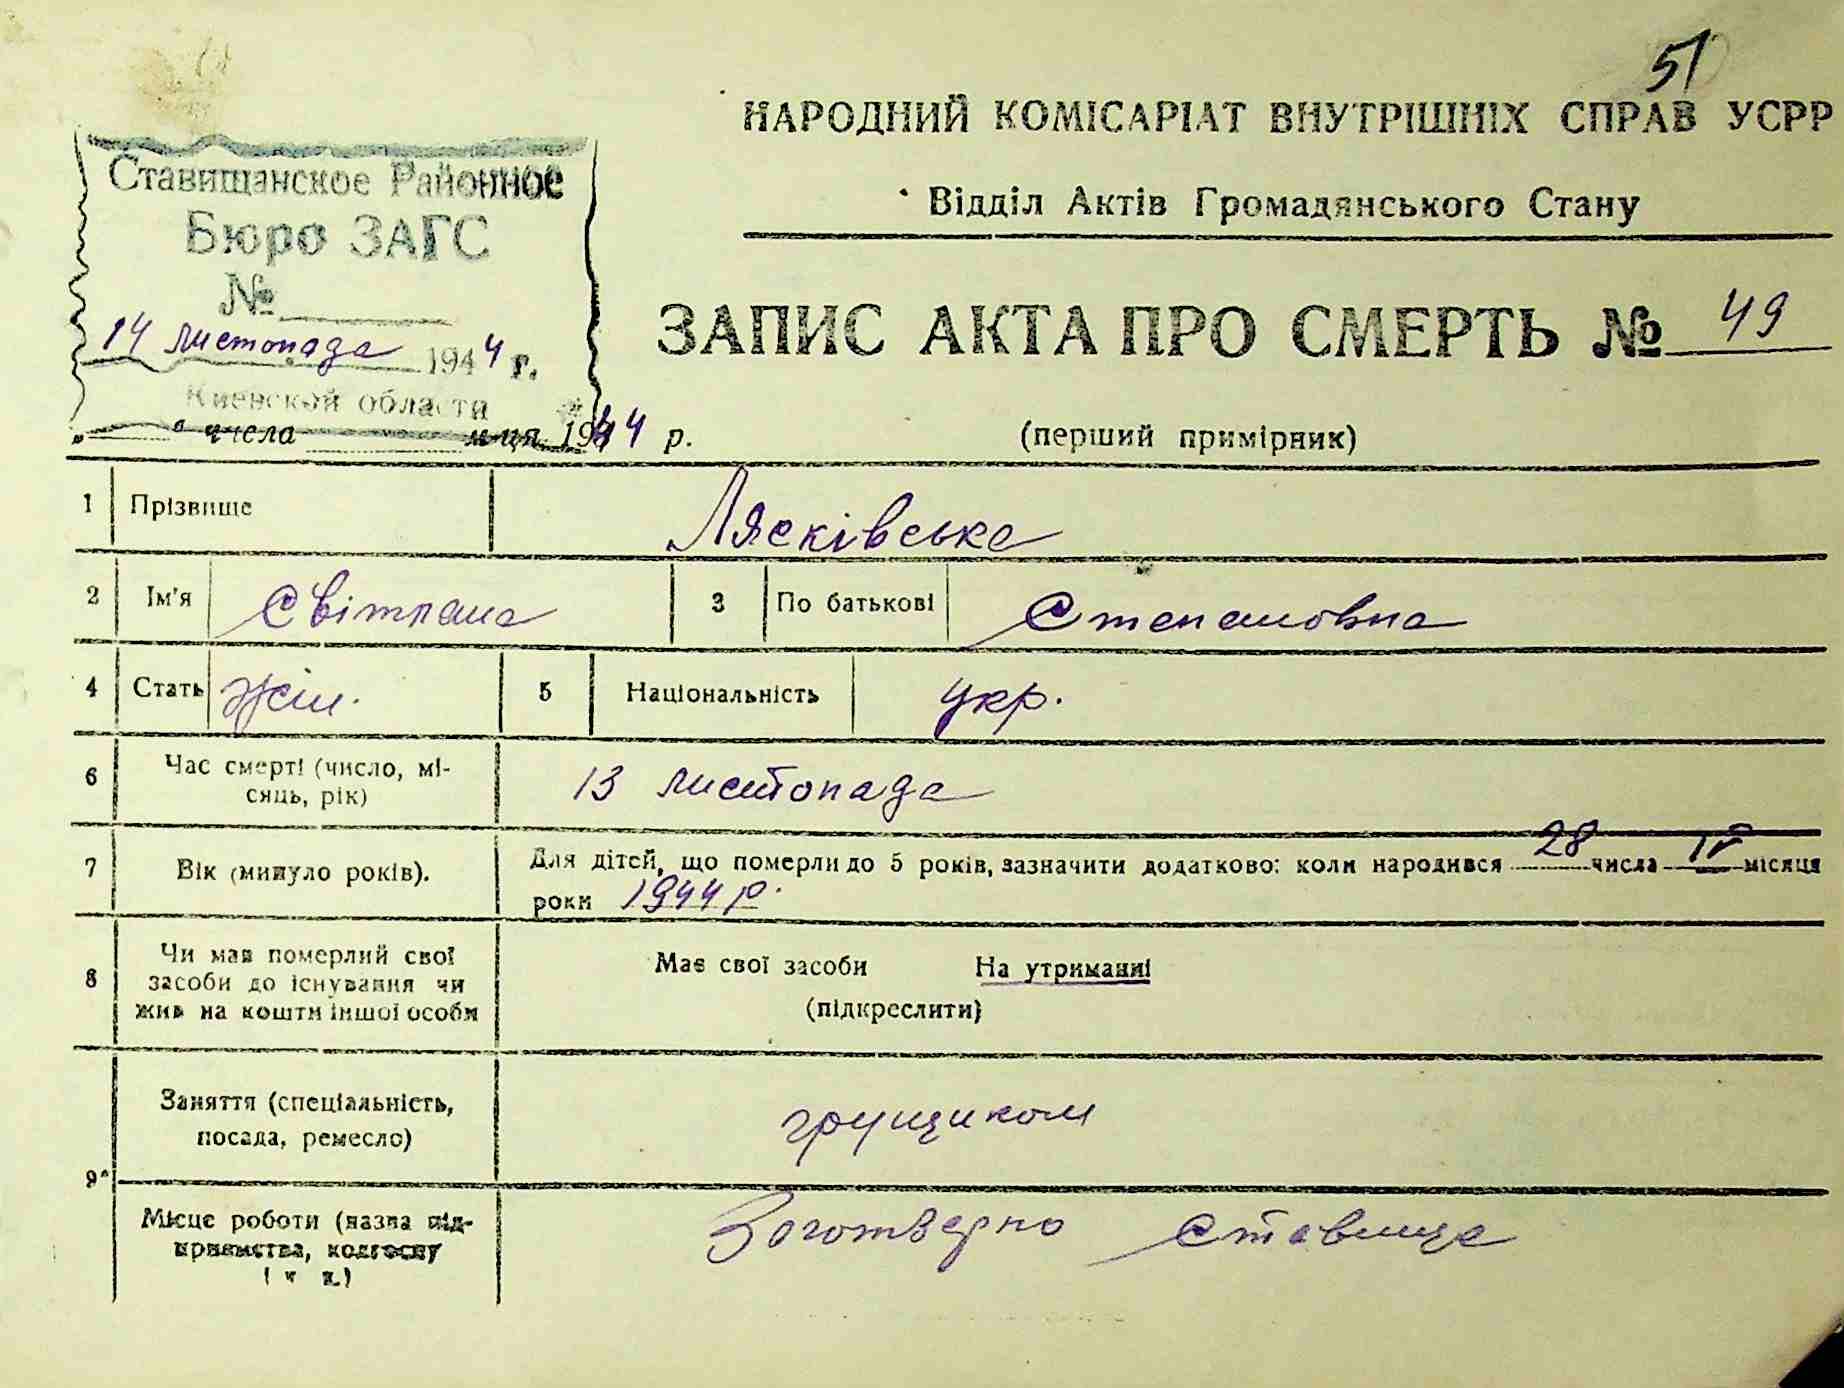 51
НАРОДНИЙ КОМІСАРІАТ ВНУТРІШНІХ СПРАВ УСРР
Відділ Актів Громадянського Стану
Ставищанское Районное
Бюро ЗАГС
№
14 листопада 1944 г.
Киевской области
" " числа м-ця 1944 р.
ЗАПИС АКТА ПРО СМЕРТЬ № 49
(перший примірник)
1 Прізвище Лясківська
2 Ім'я Світлана 3 По батькові Степановна
4 Стать жін. 5 Національність укр.
6 Час смерті (число, мі-
сяць, рік) 13 листопада
7 Вік (минуло років). Для дітей, що померли до 5 років, зазначити додатково: коли народився 28 числа IV місяця
роки 1944 р.
8 Чи мав померлий свої
засоби до існування чи
жив на кошти іншої особи
Має свої засоби На утриманні
(підкреслити)
9
Заняття (спеціальність,
посада, ремесло) грущиком
Місце роботи (назва під-
приємства, колгоспу
і т. д.) Заготзерно Ставище